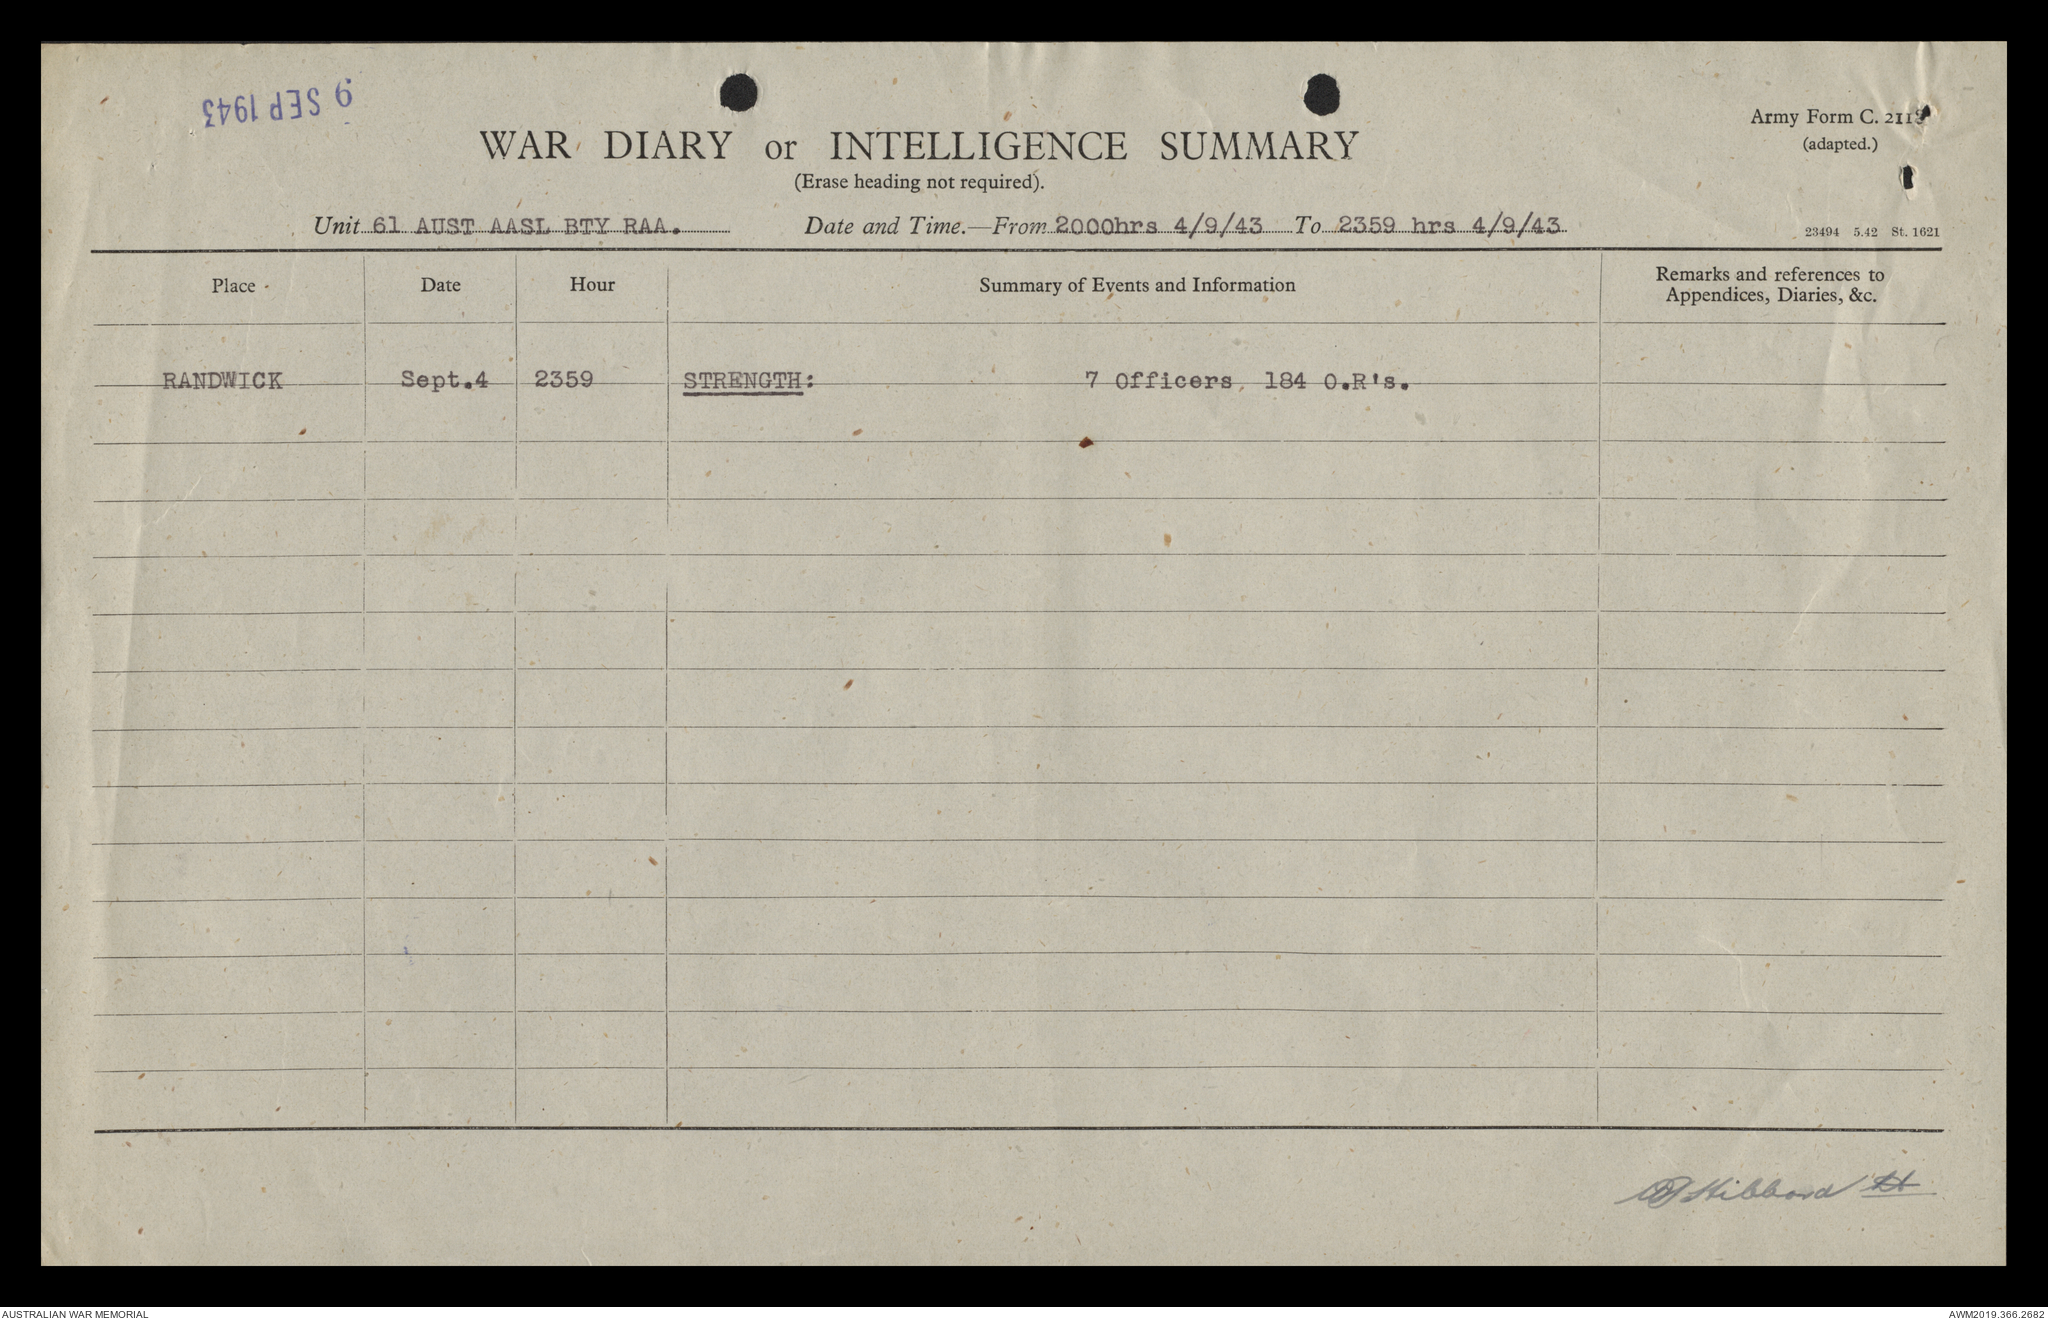 9 SEP 1943
Army Form C. 2118
WAR DIARY or INTELLIGENCE SUMMARY
(adapted.)
(Erase heading not required).
Unit 61 AUST AASL BTY RAA. Date and Time.—From 2000hrs 4/9/43 To 2359 hrs 4/9/43
23494 5.42 St. 1621
Place Date Hour Summary of Events and Information Remarks and references to
Appendices, Diaries, &c.
RANDWICK Sept.4 2359 STRENGTH: 7 Officers, 184 O.R's.
Hibbard Lt
AUSTRALIAN WAR MEMORIAL AWM2019.366.2682